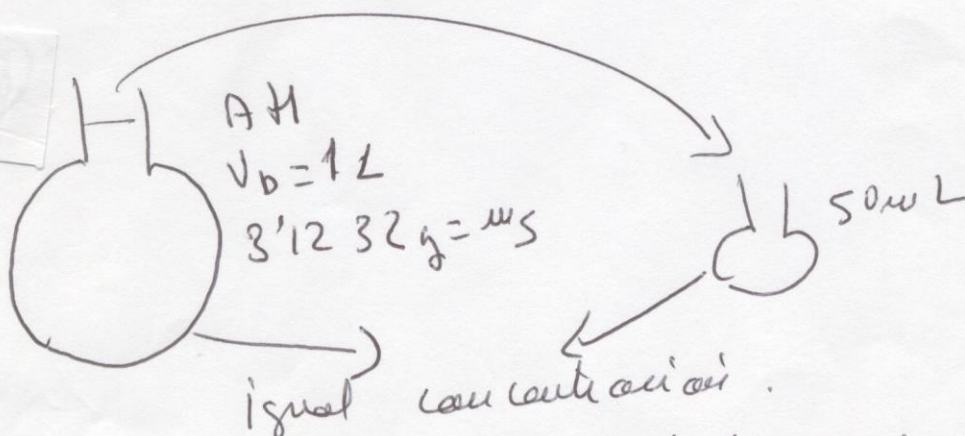 AH
V_D = 1 L
3'1232 g = ms
50 mL
igual concentración.